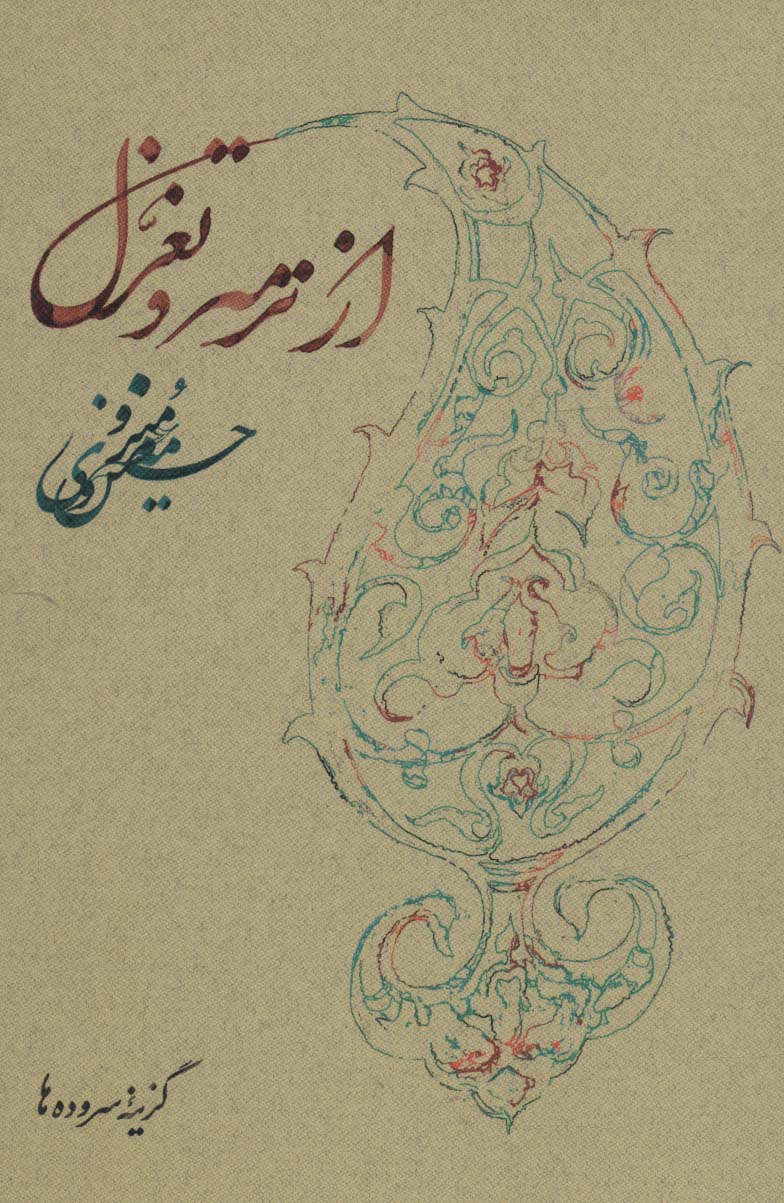 از ترمه و تغزّل
حسین مُنزوی
گزینهٔ سروده‌ها